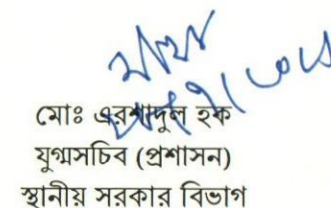 মোঃ এরশাদুল হক
যুগ্মসচিব (প্রশাসন)
স্থানীয় সরকার বিভাগ